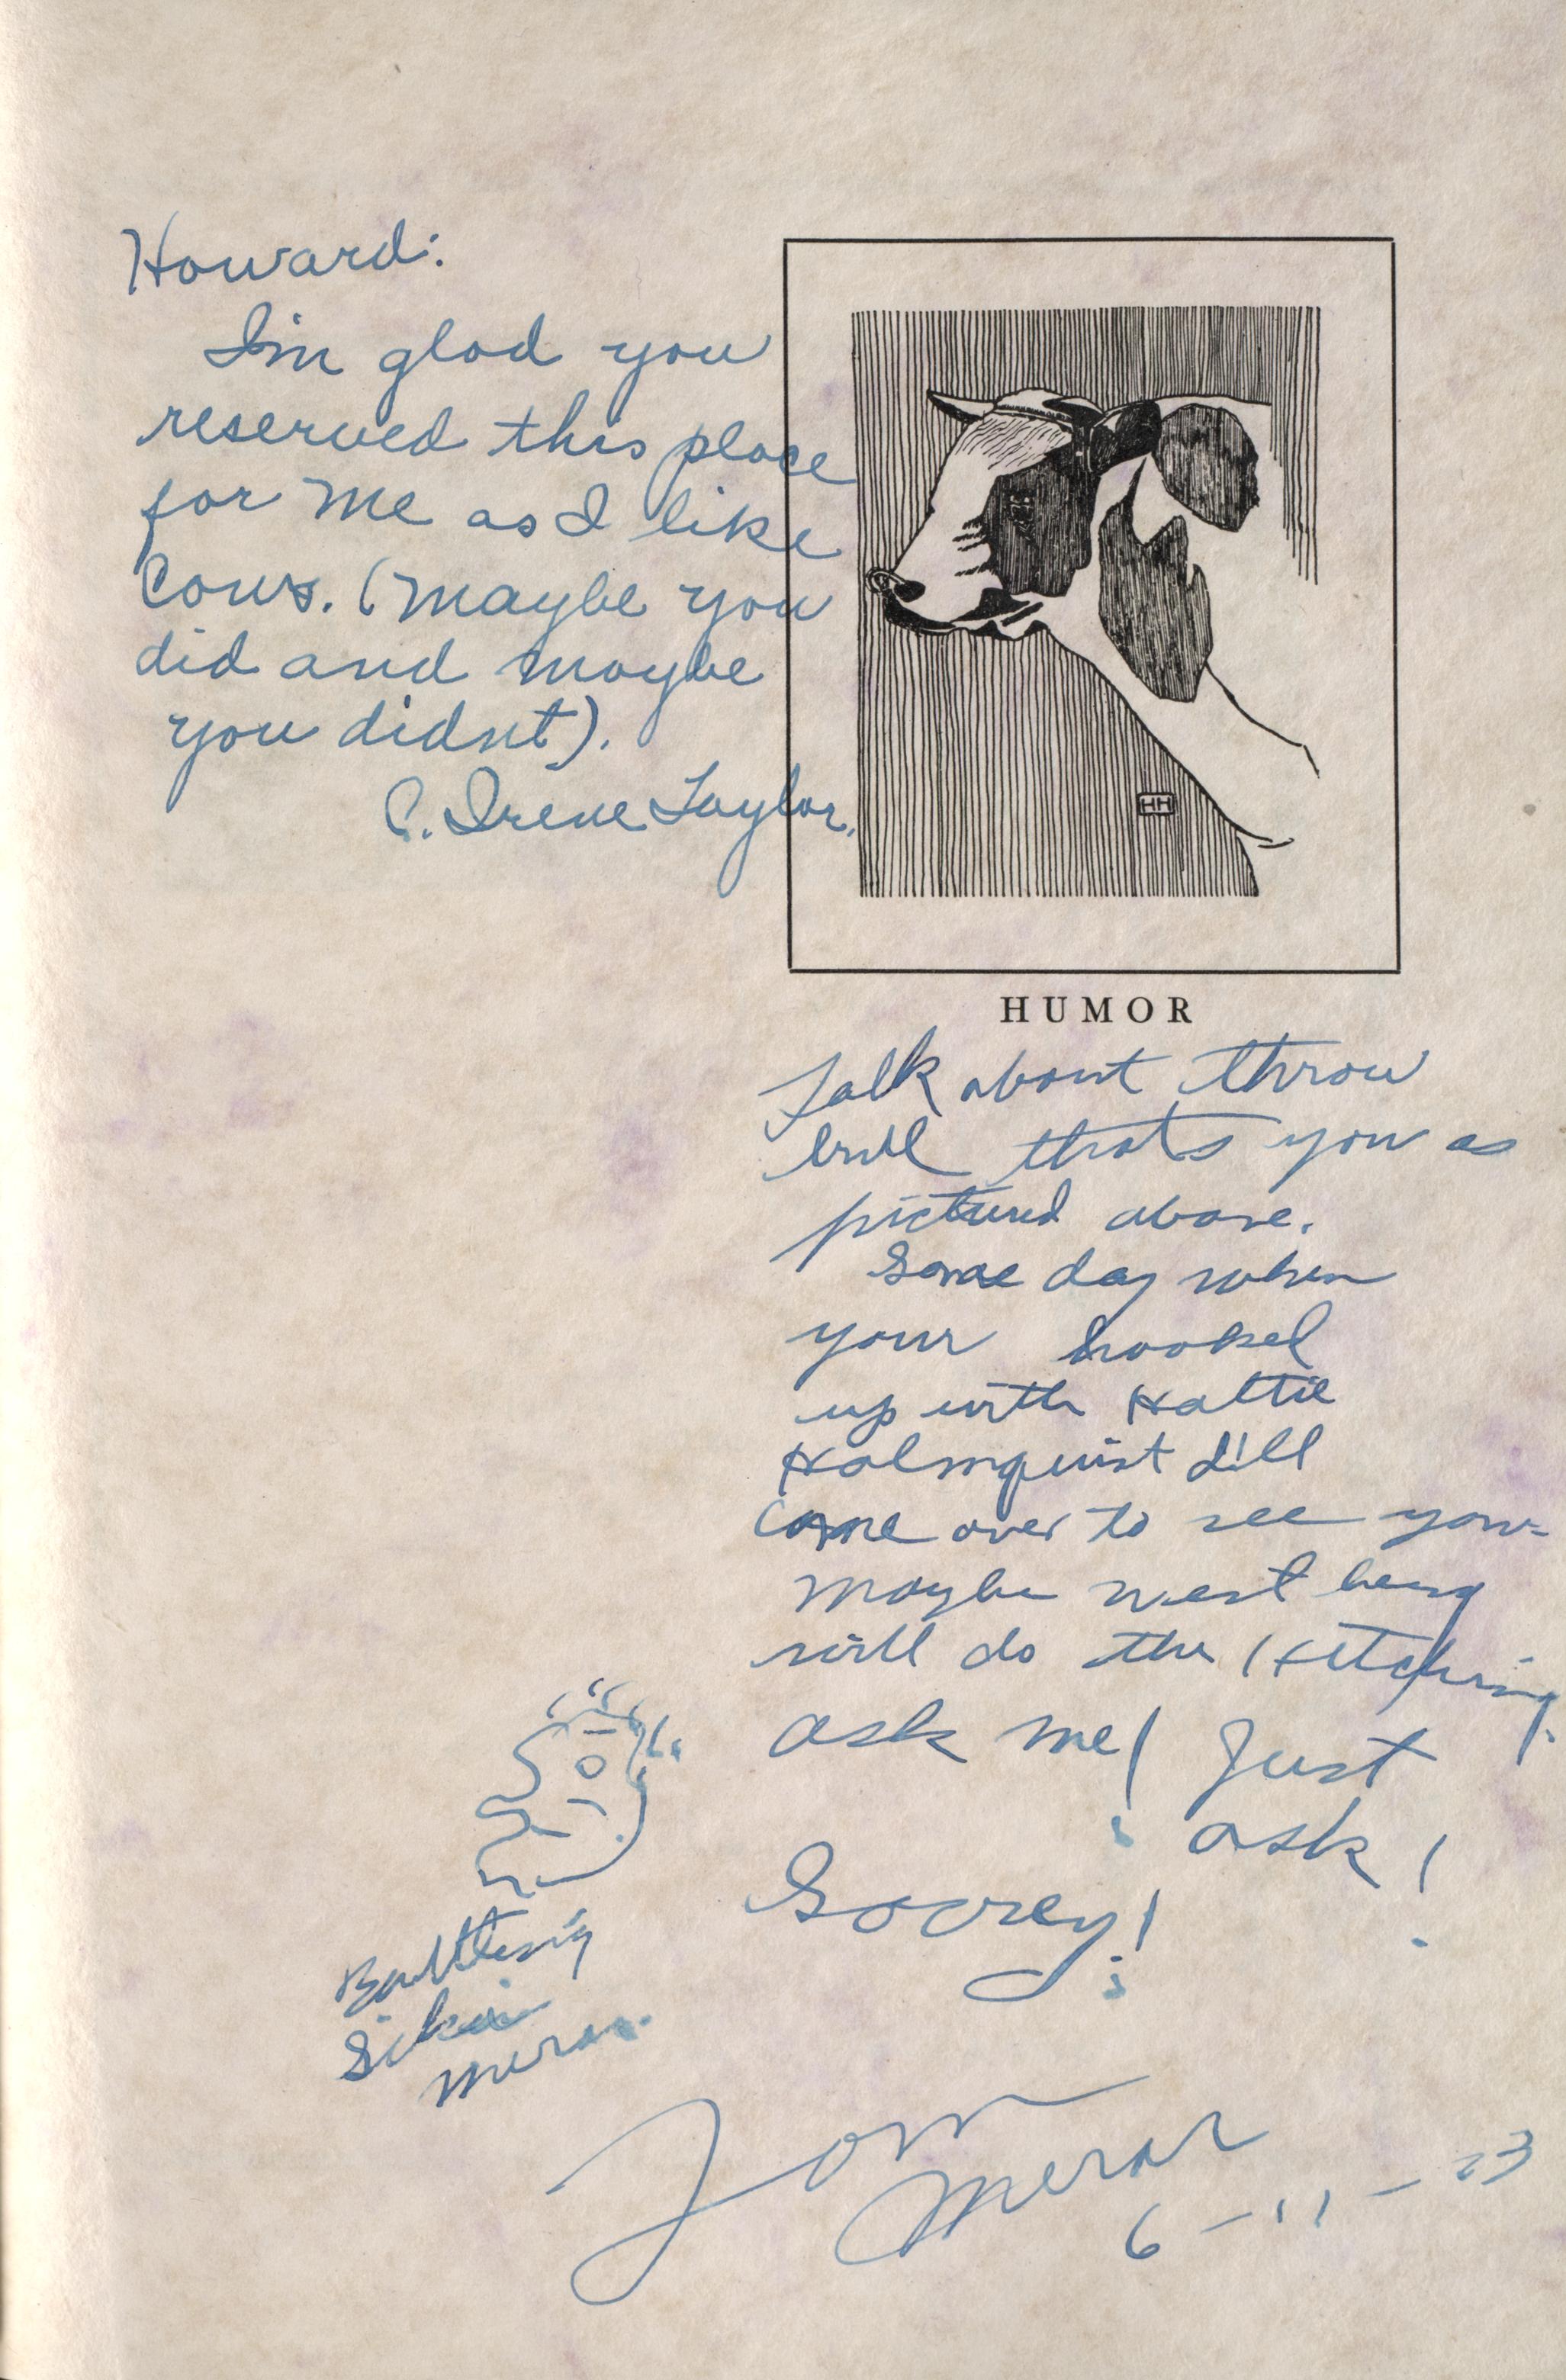 Howard:
I'm glad you
reserved this place
for me as I like
Cows. (Maybe you
did and maybe
you didnt).
C. Irene Taylor.
HH
HUMOR
Talk about throw
bull thats you as
pictured above.
Some day when
your hooked
up with Hattie
Holmquist I'll
come over to see you-
maybe west being
will do the
ask me! Just
ask!
Socrey!
Battling
Siki
Meras.
Tom
Meras
6-11-23